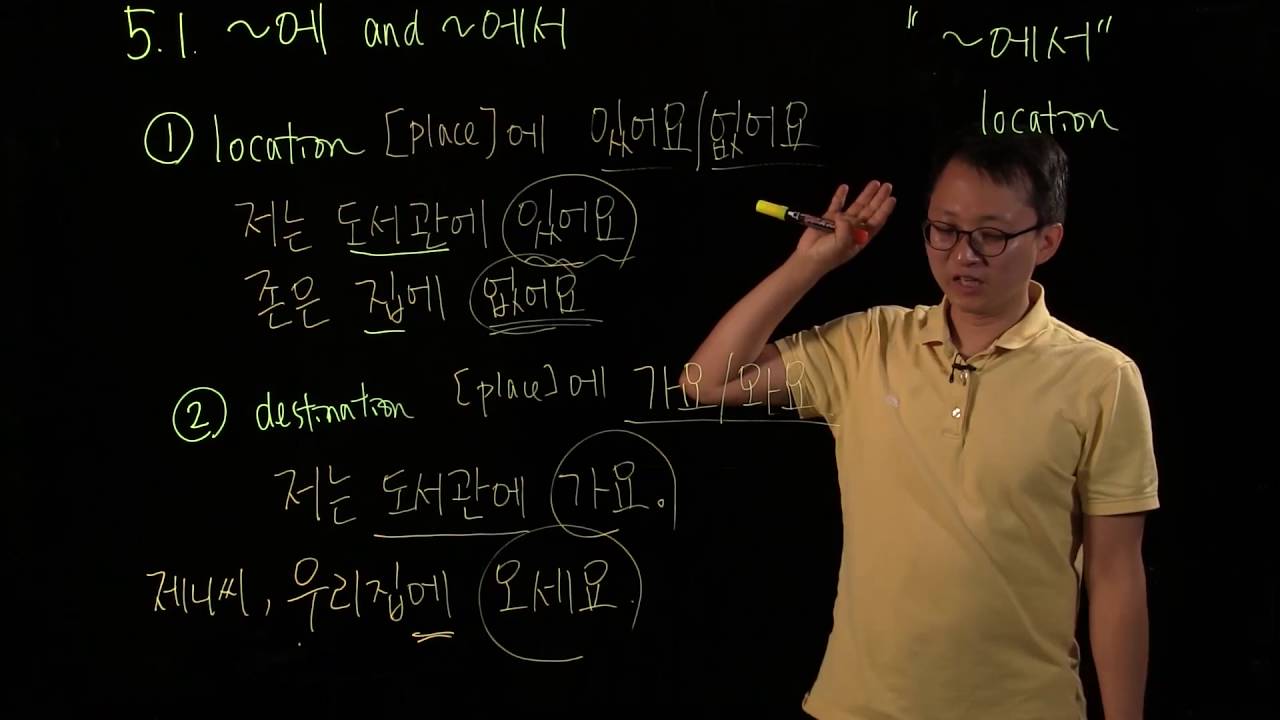 5.1. ~에 and ~에서
① location [place]에 있어요/없어요
저는 도서관에 있어요
존은 집에 없어요
② destination [place]에 가요/와요
저는 도서관에 가요.
제니씨, 우리집에 오세요.
"~에서"
location